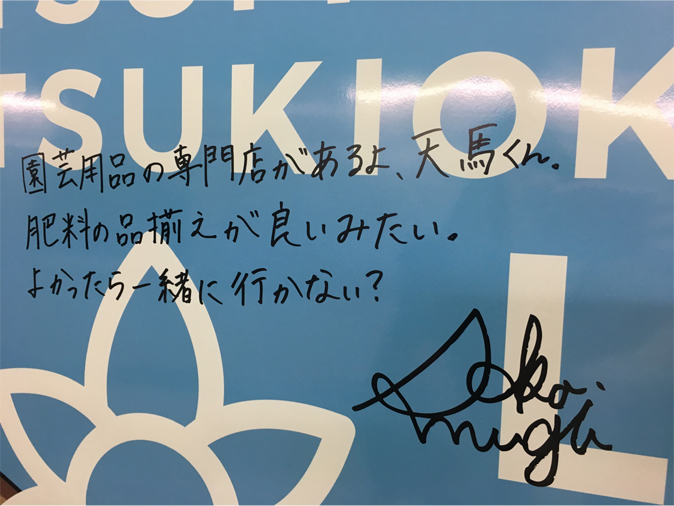 TSUKIOK
園芸用品の専門店があるよ、天馬くん。
肥料の品揃えが良いみたい。
よかったら一緒に行かない?
L